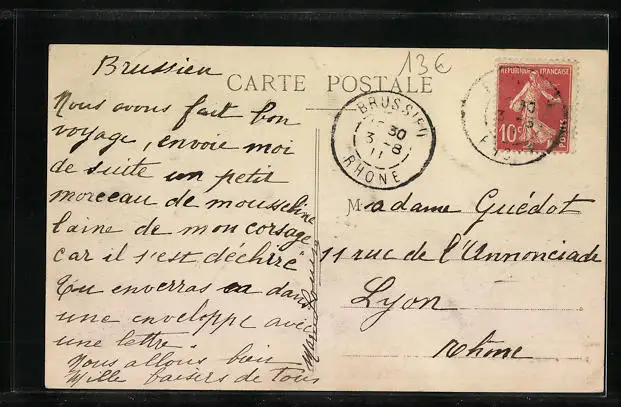 13€
Brussieu
CARTE POSTALE
Nous avons fait bon
voyage, envoie moi
de suite un petit
morceau de mousseline
laine de mon corsage
car il s'est déchiré
Tu enverras ca dans
une enveloppe avec
une lettre.
Nous allons bien
Mille baisers de tous
BRUSSIEU
30
3 - 8
11
RHONE
REPUBLIQUE FRANÇAISE
10c
POSTES
30
Madame Guédot
11 rue de l'Annonciade
Lyon
Rhône